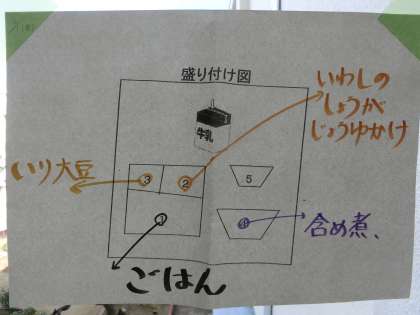 盛り付け図
いわしの
しょうが
じょうゆかけ
牛乳
いり大豆
3
2
5
1
4
含め煮、
ごはん